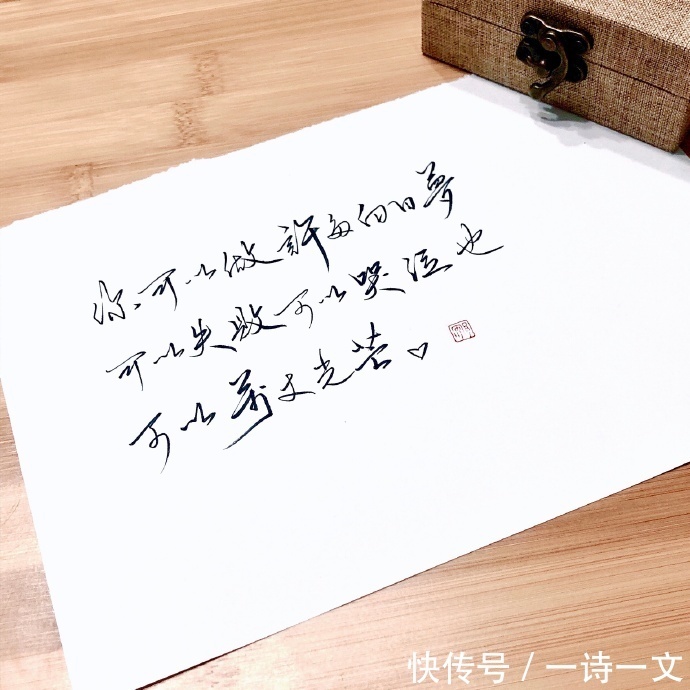 你可以做許多白日夢
可以失敗可以哭泣也
可以萬丈光芒♡
快传号 / 一诗一文